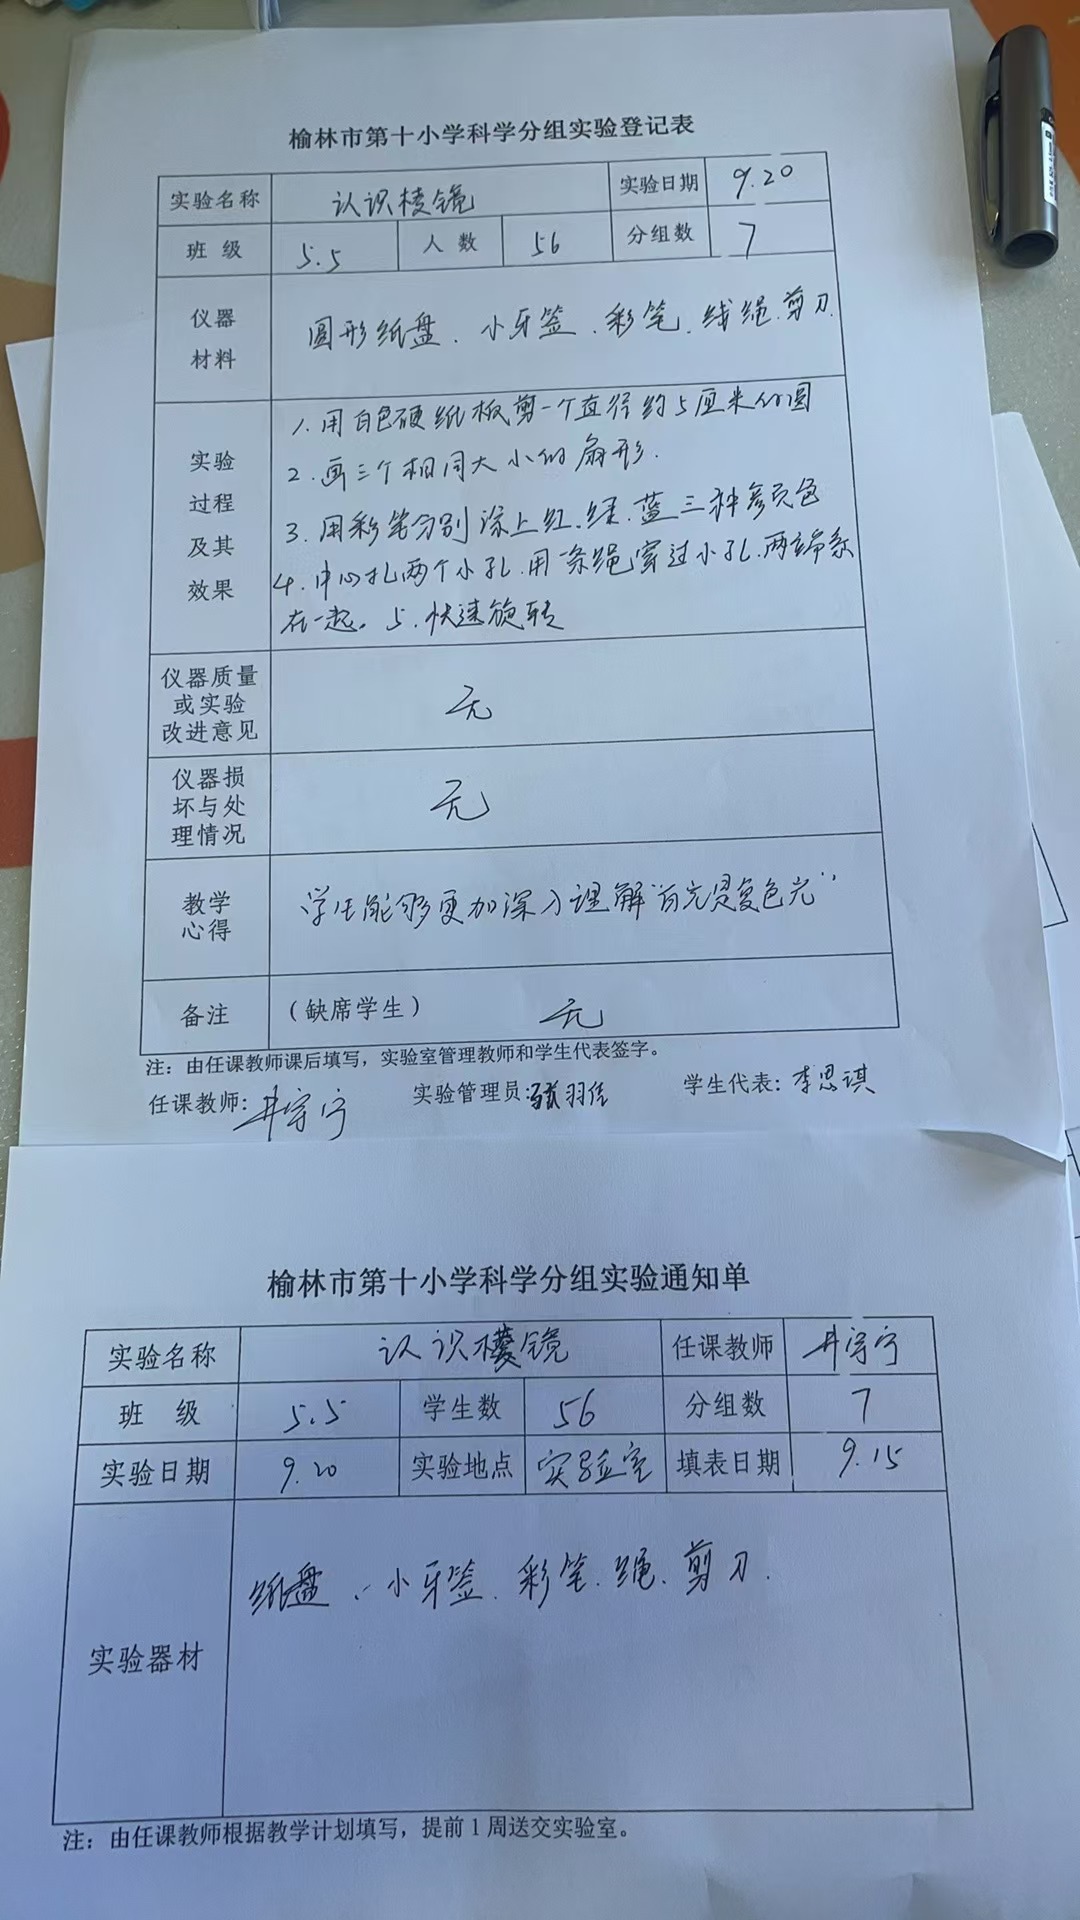 榆林市第十小学科学分组实验登记表
实验名称 认识棱镜 实验日期 9.20
班 级 5.5 人 数 56 分组数 7
仪器
材料
圆形纸盘、小牙签、彩笔、线绳、剪刀.
实验
过程
及其
效果
1. 用白色硬纸板剪一个直径约5厘米的圆
2. 画三个相同大小的扇形.
3. 用彩笔分别涂上红、绿、蓝三种颜色
4. 中心扎两个小孔.用一条绳穿过小孔.两端系
在一起。5. 快速旋转
仪器质量
或实验
改进意见
无
仪器损
坏与处
理情况
无
教学
心得
学生能够更加深入理解“白光是复色光”
备注 (缺席学生) 无
注：由任课教师课后填写，实验室管理教师和学生代表签字。
任课教师: 井宇宁 实验管理员: 羽佳 学生代表: 李思琪
榆林市第十小学科学分组实验通知单
实验名称 认识棱镜 任课教师 井宇宁
班 级 5.5 学生数 56 分组数 7
实验日期 9.20 实验地点 实验室 填表日期 9.15
实验器材
纸盘、小牙签、彩笔、绳、剪刀.
注：由任课教师根据教学计划填写，提前1周送交实验室。